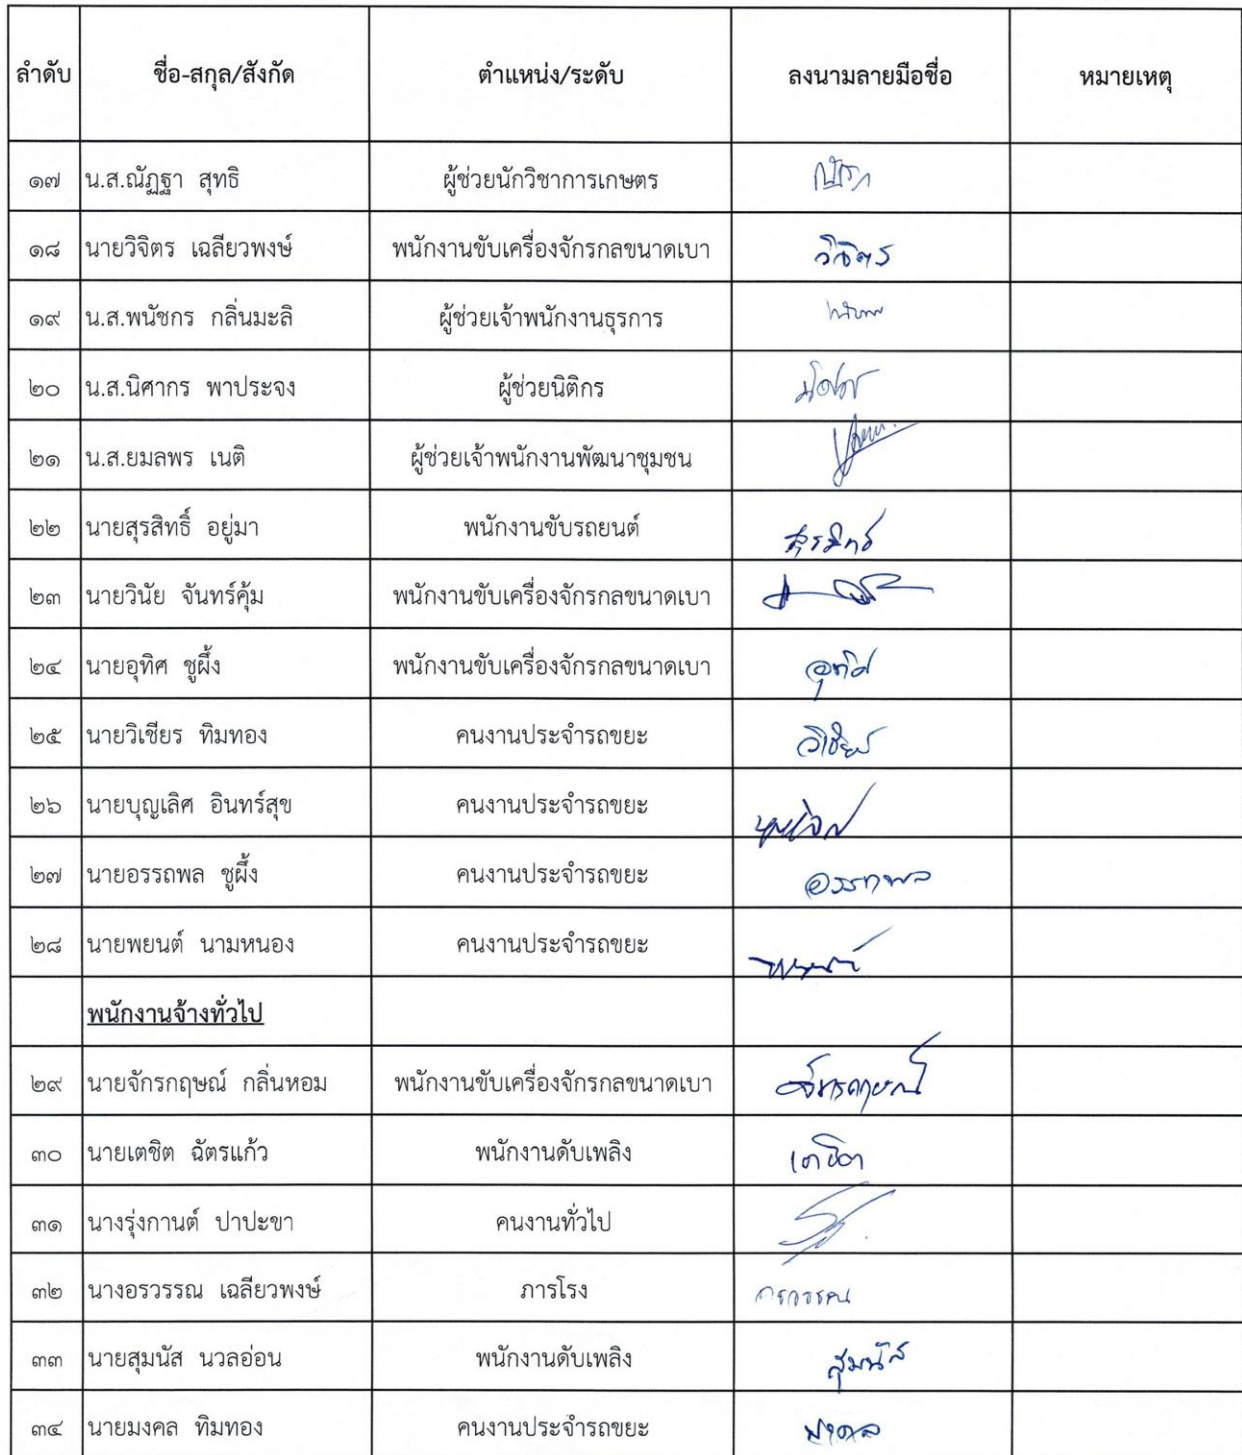 ลำดับ ชื่อ-สกุล/สังกัด ตำแหน่ง/ระดับ ลงนามลายมือชื่อ หมายเหตุ
๑๗ น.ส.ณัฏฐา สุทธิ ผู้ช่วยนักวิชาการเกษตร
๑๘ นายวิจิตร เฉลียวพงษ์ พนักงานขับเครื่องจักรกลขนาดเบา วิจิตร
๑๙ น.ส.พนัชกร กลิ่นมะลิ ผู้ช่วยเจ้าพนักงานธุรการ
๒๐ น.ส.นิศากร พาประจง ผู้ช่วยนิติกร
๒๑ น.ส.ยมลพร เนติ ผู้ช่วยเจ้าพนักงานพัฒนาชุมชน
๒๒ นายสุรสิทธิ์ อยู่มา พนักงานขับรถยนต์ สุรสิทธิ์
๒๓ นายวินัย จันทร์คุ้ม พนักงานขับเครื่องจักรกลขนาดเบา
๒๔ นายอุทิศ ชูผึ้ง พนักงานขับเครื่องจักรกลขนาดเบา อุทิศ
๒๕ นายวิเชียร ทิมทอง คนงานประจำรถขยะ วิเชียร
๒๖ นายบุญเลิศ อินทร์สุข คนงานประจำรถขยะ
๒๗ นายอรรถพล ชูผึ้ง คนงานประจำรถขยะ อรรถพล
๒๘ นายพยนต์ นามหนอง คนงานประจำรถขยะ
พนักงานจ้างทั่วไป
๒๙ นายจักรกฤษณ์ กลิ่นหอม พนักงานขับเครื่องจักรกลขนาดเบา จักรกฤษณ์
๓๐ นายเตชิต ฉัตรแก้ว พนักงานดับเพลิง เตชิต
๓๑ นางรุ่งกานต์ ปาปะขา คนงานทั่วไป
๓๒ นางอรวรรณ เฉลียวพงษ์ ภารโรง อรวรรณ
๓๓ นายสุมนัส นวลอ่อน พนักงานดับเพลิง สุมนัส
๓๔ นายมงคล ทิมทอง คนงานประจำรถขยะ มงคล